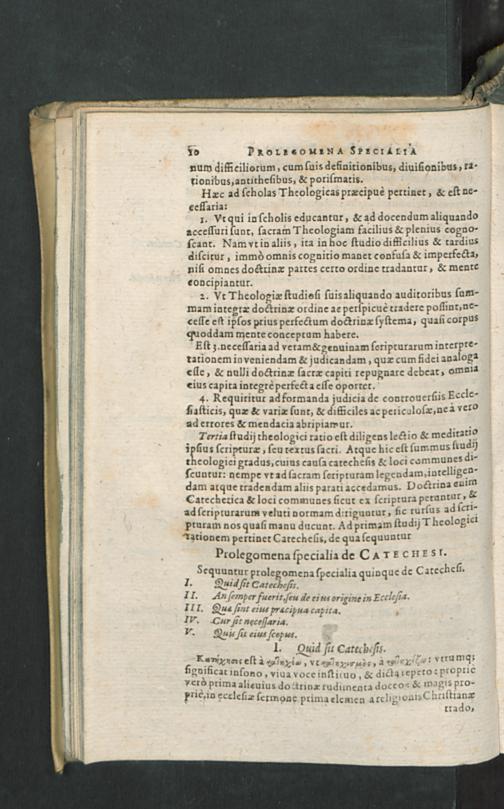 10 PROLEGOMENA SPECIALIA
num difficiliorum, cum suis definitionibus, diuisionibus, ra-
tionibus, antithesibus, & porismatis.
Hæc ad scholas Theologicas præcipuè pertinet, & est ne-
cessaria:
1. Vt qui in scholis educantur, & ad docendum aliquando
accessuri sunt, sacram Theologiam facilius & plenius cogno-
scant. Nam vt in aliis, ita in hoc studio difficilius & tardius
discitur, immò omnis cognitio manet confusa & imperfecta,
nisi omnes doctrinæ partes certo ordine tradantur, & mente
concipiantur.
2. Vt Theologiæ studiosi suis aliquando auditoribus sum-
mam integram doctrinæ ordine ac perspicuè tradere possint, ne-
cesse est ipsos prius perfectum doctrinæ systema, quasi corpus
quoddam mente conceptum habere.
Est 3. necessaria ad veram & genuinam scripturarum interpre-
tationem inveniendam & judicandam, quæ cum fidei analoga
esse, & nulli doctrinæ sacræ capiti repugnare debeat, omnia
eius capita integrè perfecta esse oportet.
4. Requiritur ad formanda judicia de controversiis Eccle-
siasticis, quæ & variæ sunt, & difficiles ac periculosæ, ne à vero
ad errores & mendacia abripiamur.
Tertia studij theologici ratio est diligens lectio & meditatio
ipsius scripturæ, seu textus sacri. Atque hic est summus studij
theologici gradus, cuius causa catechesis & loci communes di-
scuntur: nempe vt ad sacram scripturam legendam, intelligen-
dam atque tradendam aliis parati accedamus. Doctrina enim
Catechetica & loci communes sicut ex scriptura petuntur, &
ad scripturarum veluti normam diriguntur, sic rursus ad scri-
pturam nos quasi manu ducunt. Ad primam studij Theologici
rationem pertinet Catechesis, de qua sequuntur
Prolegomena specialia de CATECHESI.
Sequuntur prolegomena specialia quinque de Catechesi.
I. Quid sit Catechesis.
II. An semper fuerit, seu de eius origine in Ecclesia.
III. Quæ sint eius præcipua capita.
IV. Cur sit necessaria.
V. Quis sit eius scopus.
I. Quid sit Catechesis.
Κατήχησις est à κατηχέω, vt κατηχισμὸς, à κατηχίζω: vtrumq;
significat insono, viua voce instituo, & dicta repeto: propriè
verò prima alicuius doctrinæ rudimenta doceo: & magis pro-
priè, in ecclesiæ sermone prima elementa religionis Christianæ
trado,